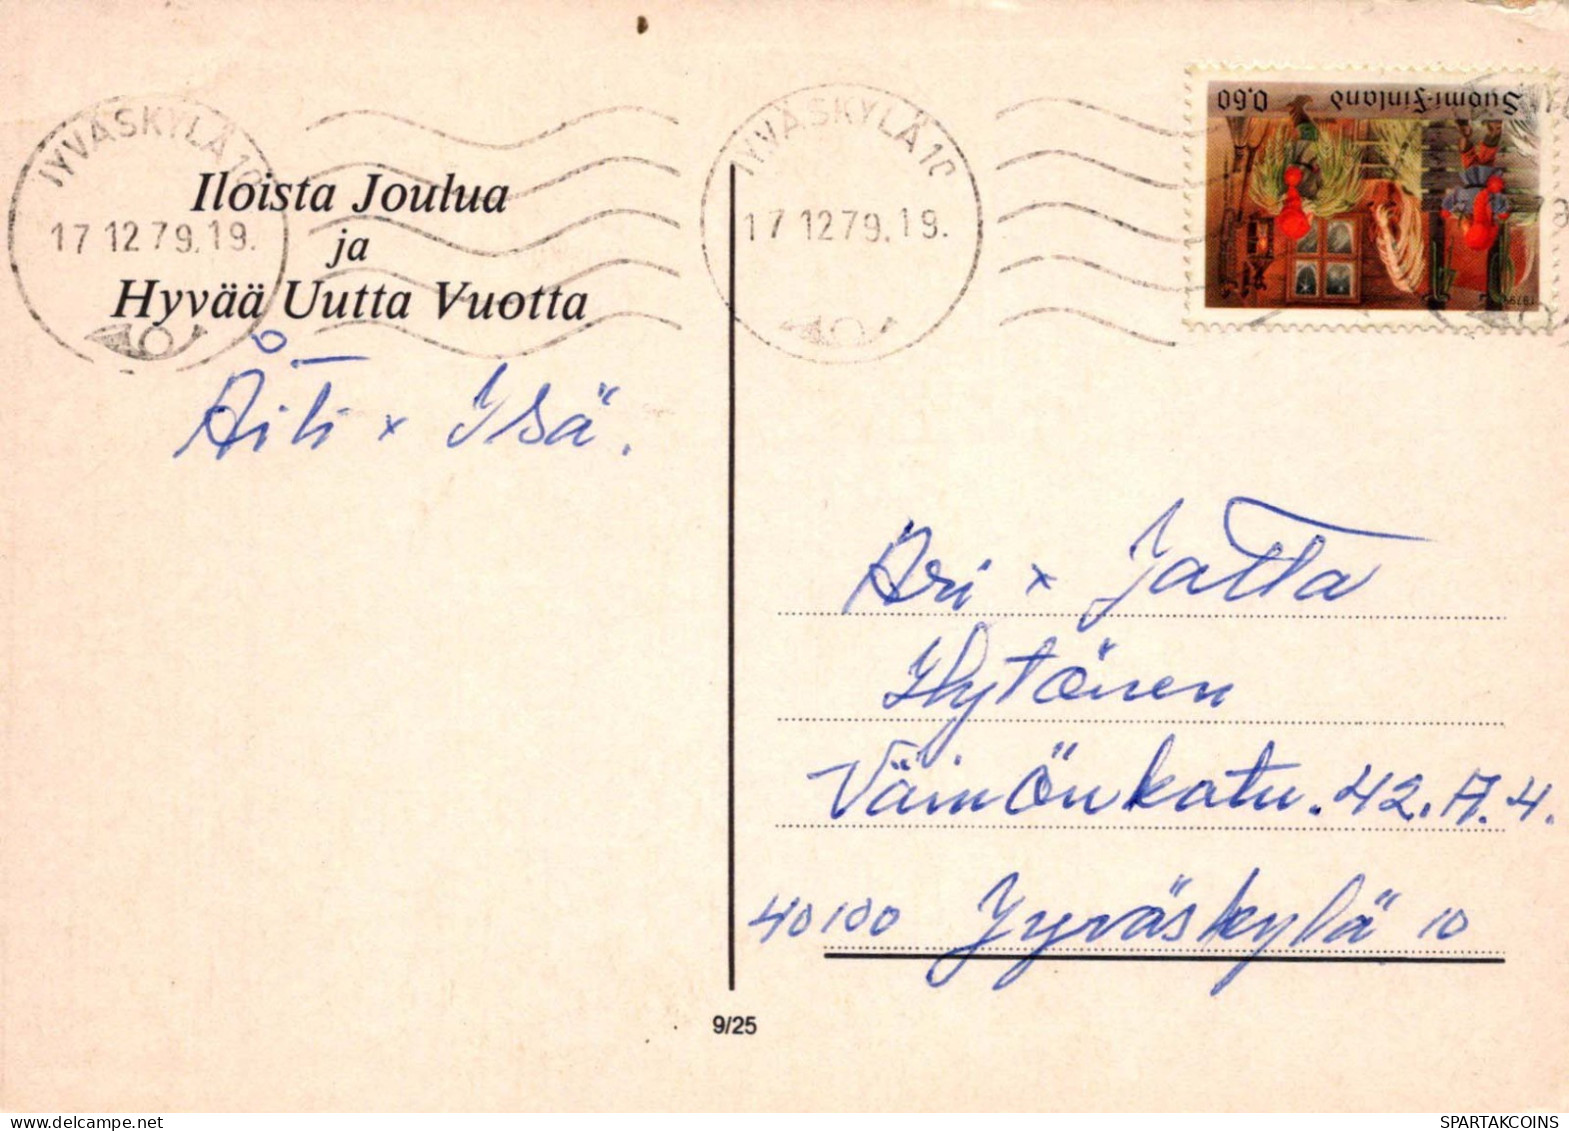 JYVÄSKYLÄ 10
17 12 79.19.
JYVÄSKYLÄ 10
17 12 79.19.
0.60 Suomi-Finland
1979
Iloista Joulua
ja
Hyvää Uutta Vuotta
Äiti x Isä.
Ari x Jatta
Hytönen
Väinönkatu. 42. A. 4.
40100 Jyväskylä 10
9/25
delcampe.net
SPARTAKCOINS